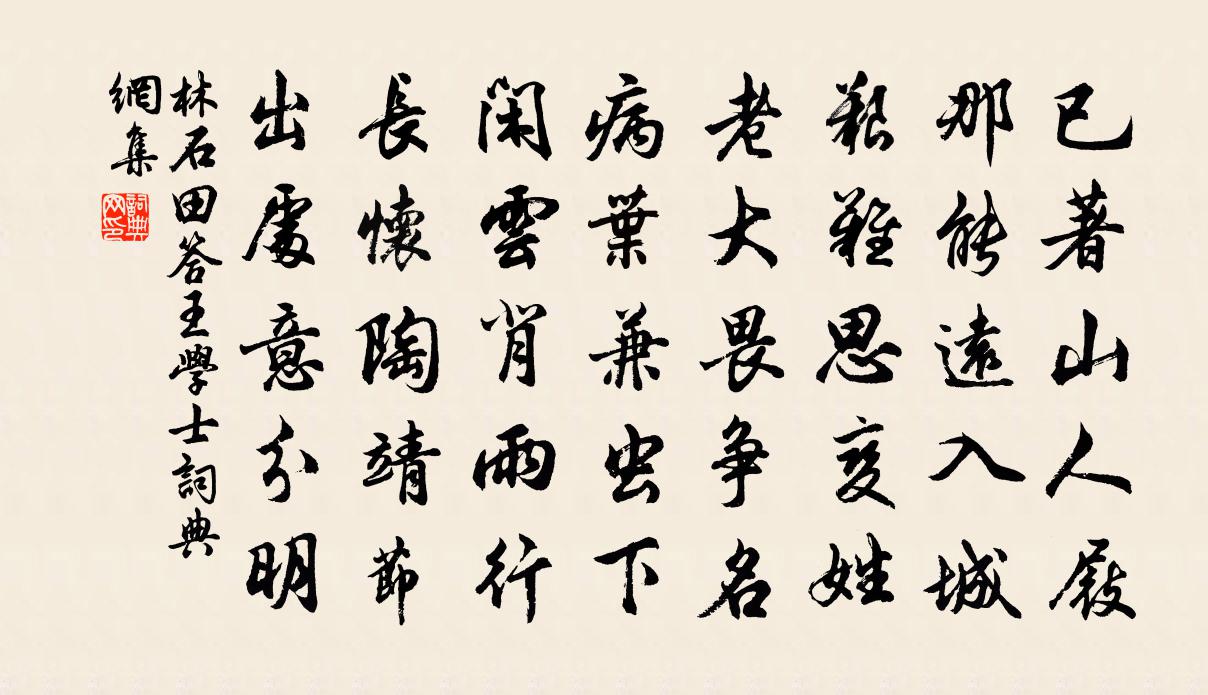 已著山人屐
那能遠入城
艱難思变姓
老大畏争名
病葉兼虫下
閑雲肖雨行
長懷陶靖節
出處意分明
林石田答王學士詞典
網集
詞典
网印